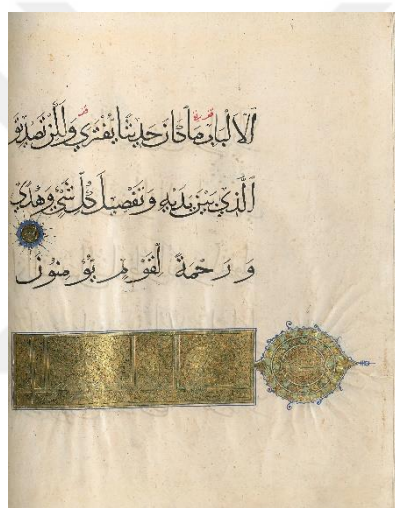 الْأَلْبَابِ مَا كَانَ حَدِيثًا يُفْتَرَى وَلَكِنْ تَصْدِيقَ
الَّذِي بَيْنَ يَدَيْهِ وَتَفْصِيلَ كُلِّ شَيْءٍ وَهُدًى
وَرَحْمَةً لِقَوْمٍ يُؤْمِنُونَ